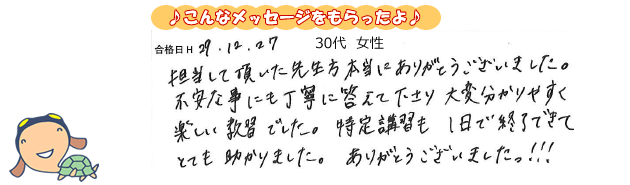 ♪こんなメッセージをもらったよ♪
合格日H 29.12.27 30代 女性
担当して頂いた先生方本当にありがとうございました。
不安な事にも丁寧に答えて下さり 大変分かりやすく
楽しい教習でした。 特定講習も 1日で終了できて
とても助かりました。 ありがとうございましたっ!!!